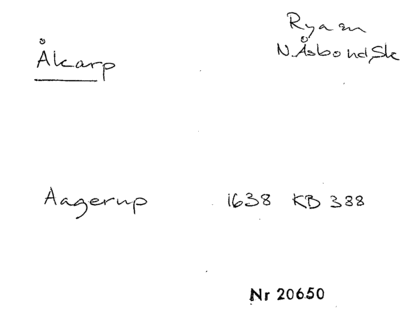 Åkarp
Rya sn
N.Åsbo hd, Sk
Aagerup 1638 KB 388
Nr 20650